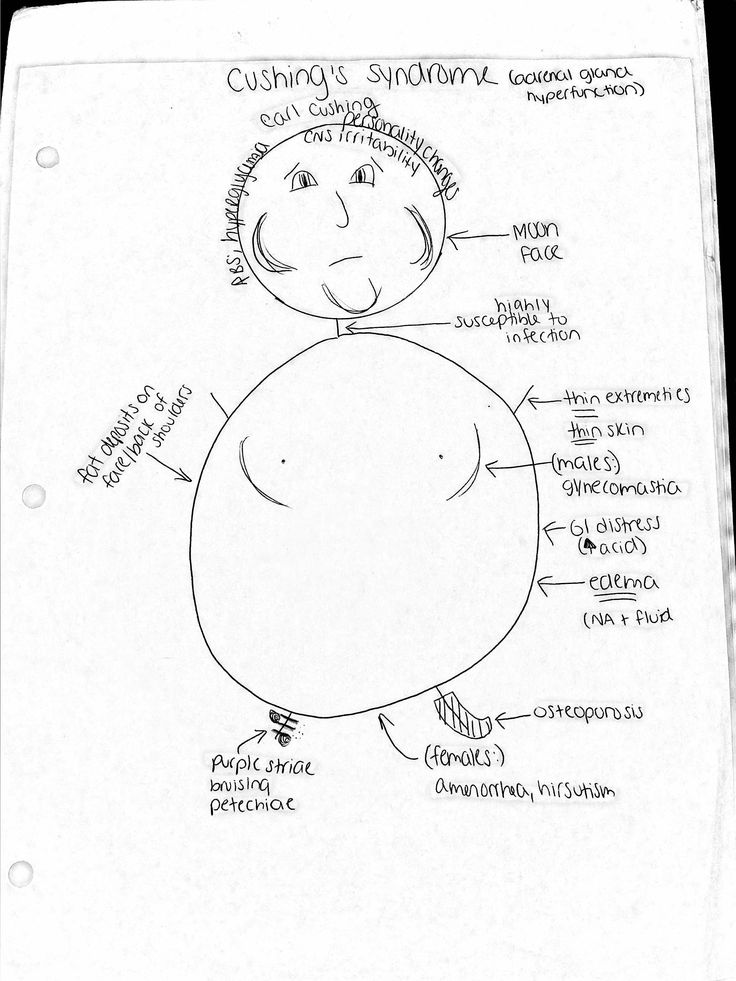 Cushing's Syndrome (adrenal gland
hyperfunction)
Carl Cushing
personality changes
CNS irritability
↑BS, hypreglycemia
Moon
Face
highly
susceptible to
infection
fat deposits on
face/back of
shoulders
thin extremeties
thin skin
(males:)
gynecomastia
GI distress
(↑acid)
edema
(NA + fluid
osteoporosis
purple striae
bruising
petechiae
(females:)
amenorrhea, hirsutism